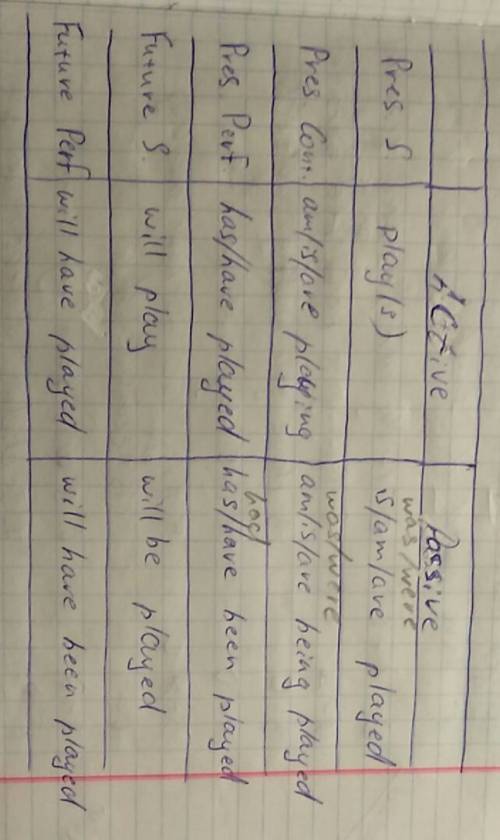 Active Passive
was/were
Pres S play(s) is/am/are played
was/were
Pres Cont. am/is/are playing am/is/are being played
had
Pres. Perf. has/have played has/have been played
Future S. will play will be played
Future Perf will have played will have been played